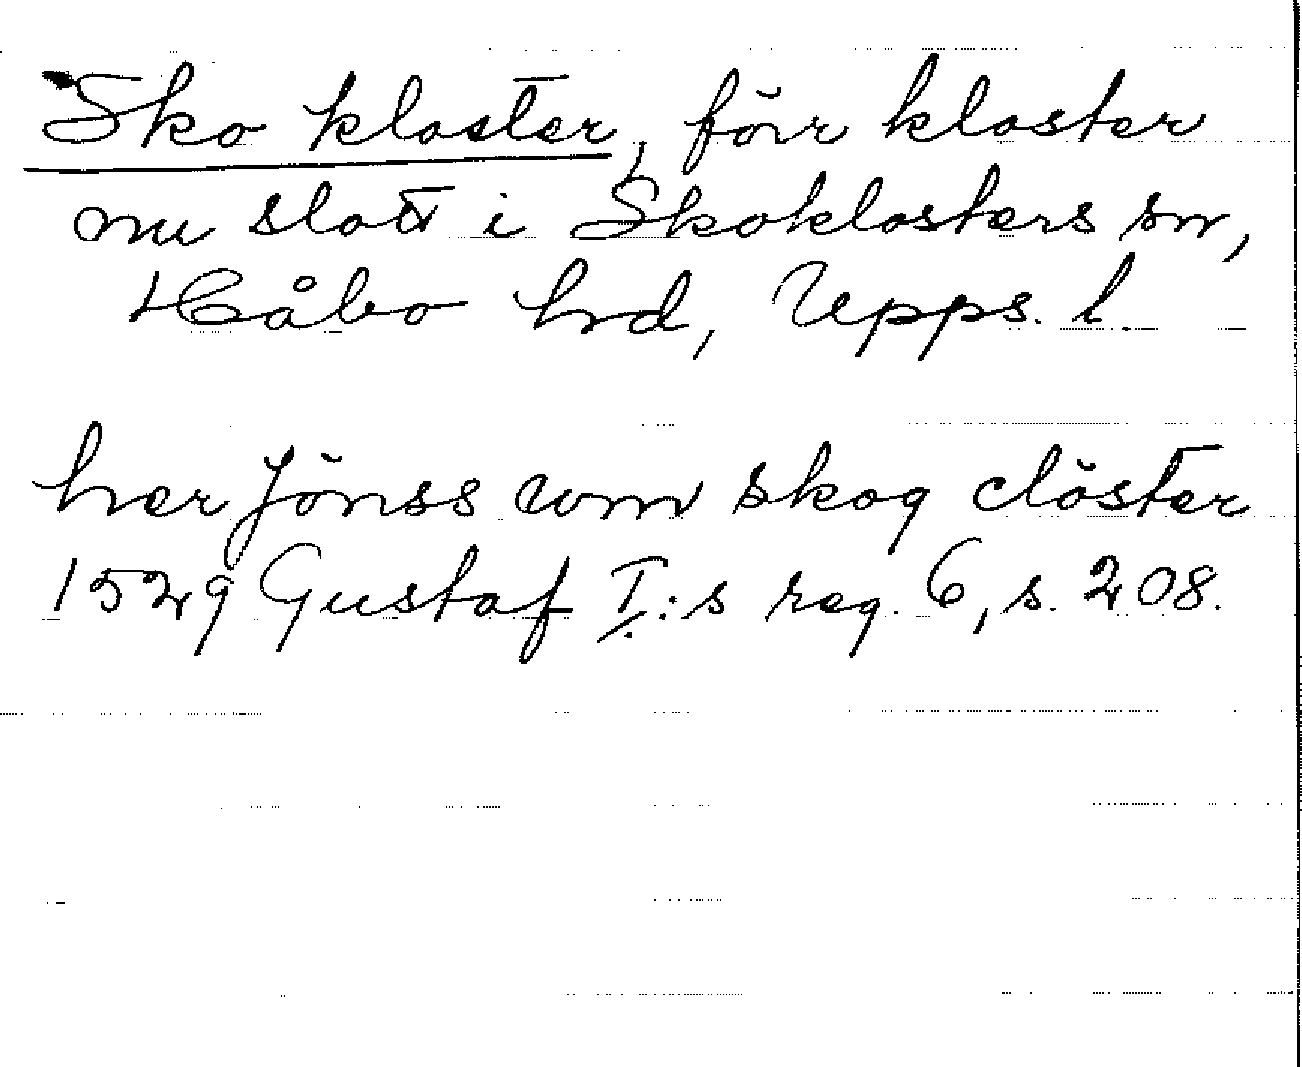 Sko kloster, förr kloster
nu slott i Skoklosters sn,
Håbo hrd, Upps. l.
her Jönss vom skog clöster
1529 Gustaf I:s reg. 6, s. 208.